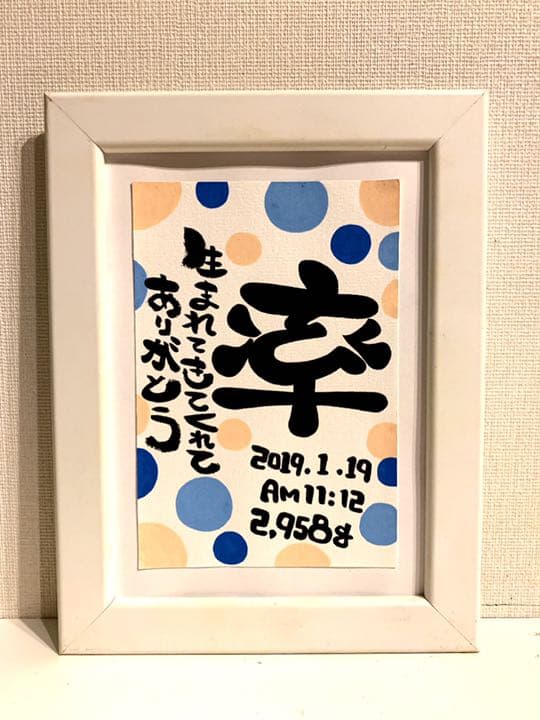 率
生まれてきてくれて
ありがとう
2019.1.19
AM11:12
2,958g